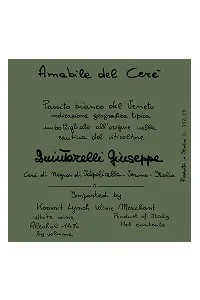 Amabile del Cerè
Passito bianco del Veneto
indicazione geografica tipica
imbottigliato all'origine nella
cantina del viticoltore
Quintarelli Giuseppe
Cerè di Negrar di Valpolicella - Verona - Italia
Imported by
Kermit Lynch Wine Merchant
White wine
Product of Italy
Alcohol 14%
Net contents
by volume